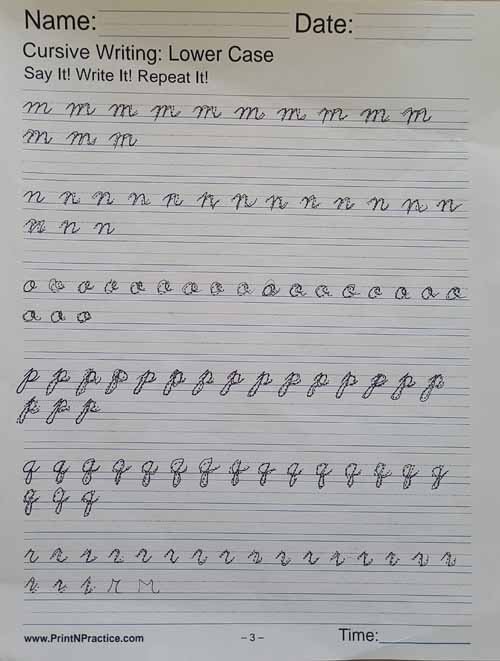 Name: Date:
Cursive Writing: Lower Case
Say It! Write It! Repeat It!
m m m m m m m m m m
m m m
n n n n n n n n n n n n n
n n n
o o o o o o o o o o o o o o o o o
o o o
p p p p p p p p p p p p p p p
p p p
q q q q q q q q q q q q q q q
q q q
r r r r r r r r r r r r r r r r
r r r r M
www.PrintNPractice.com – 3 – Time: